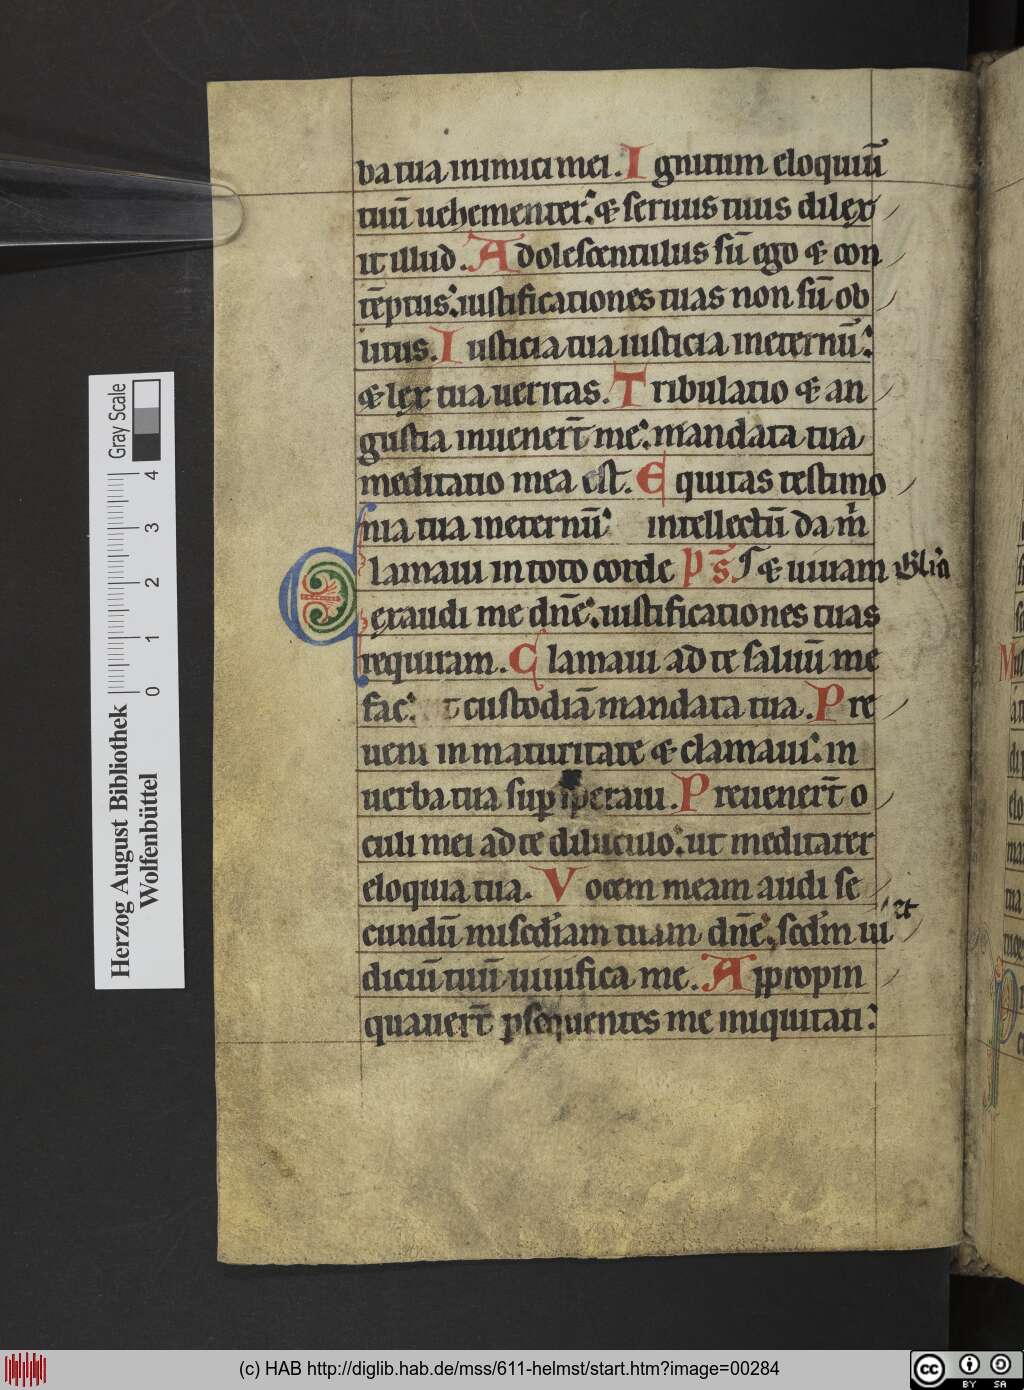 ba tua inimici mei. Ignitum eloquiū
tuū uehementer: & seruus tuus dilex
it illud. Adolescentulus sū ego & con
tēptus: iustificationes tuas non sū ob
litus. Iusticia tua iusticia ineternū:
& lex tua ueritas. Tribulatio & an
gustia inuenert̄ me: mandata tua
meditatio mea est. Equitas testimo
nia tua ineternū: intellectū da m
Clamaui in toto corde ps̄ & uiuam Gl̄ia
exaudi me dn̄e: iustificationes tuas
requiram. Clamaui ad te saluū me
fac: t custodiā mandata tua. Pre
ueni in maturitate & clamaui: in
uerba tua sup speraui. Preuenert̄ o
culi mei ad te diluculo: ut meditarer
eloquia tua. Vocem meam audi se
cundū misc̄diam tuam dn̄e: & scd̄m iu
diciū tuū uiuifica me. Appropin
quauert̄ psequentes me iniquitati:
Herzog August Bibliothek
Wolfenbüttel
0 1 2 3 4
Gray Scale
(c) HAB http://diglib.hab.de/mss/611-helmst/start.htm?image=00284
cc BY SA